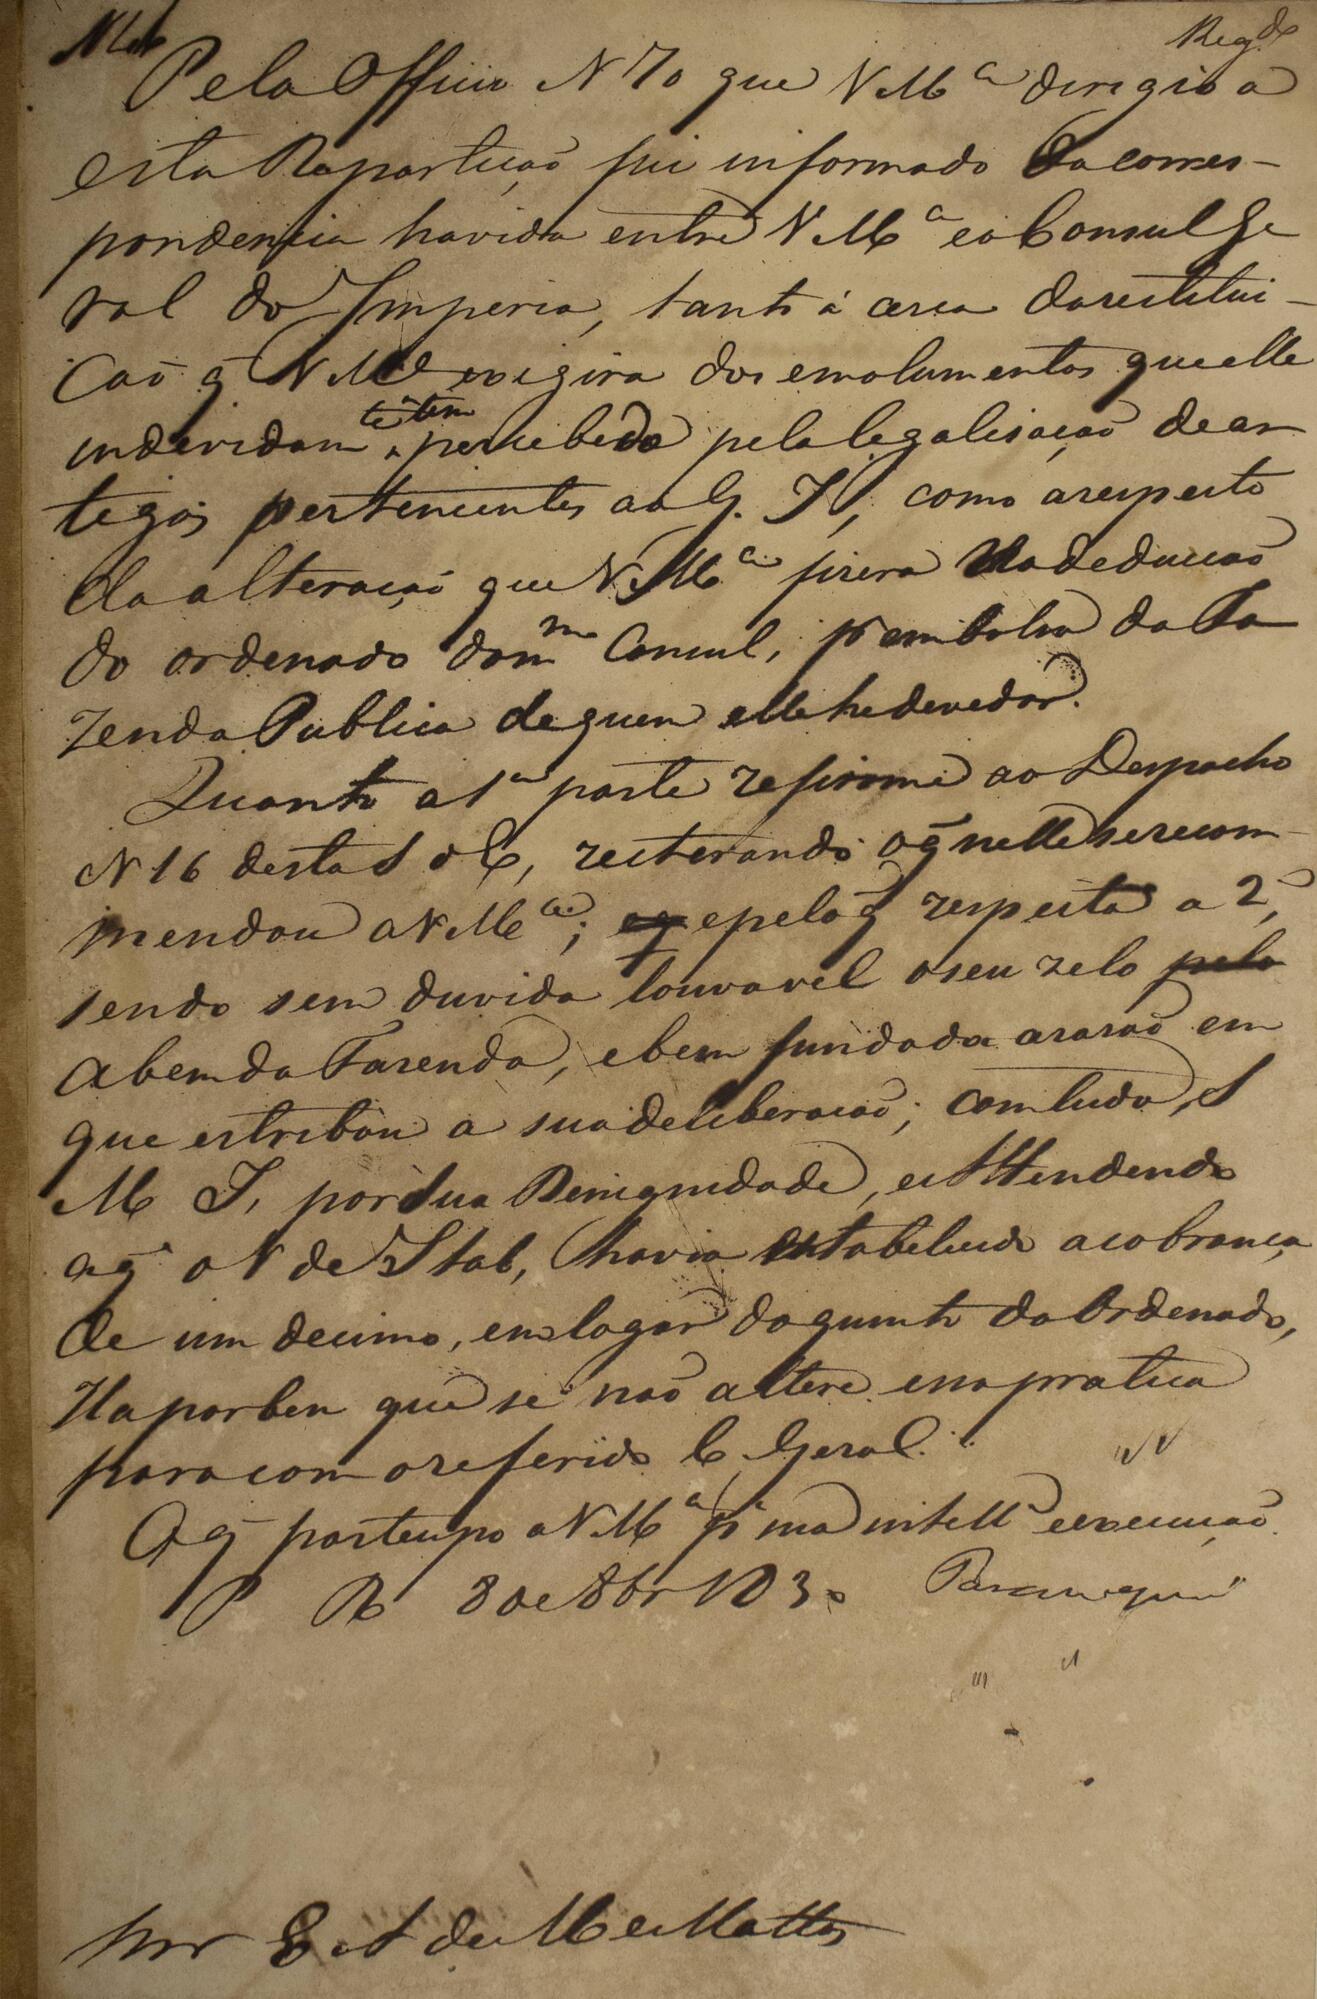 Reg.do
Pelo Officio N 70 que V Mce dirigio a
esta Repartição fui informado da corres-
pondencia havida entre V Mce e o Consul Ge
ral do Imperio, tanto á cerca da restitui-
cão q̃ V Mce exigira dos emolumentos que elle
indevidamte tem percebido pela legalisação de ar
tigos pertencentes ao G. I, como a respeito
da alteração que V Mce fizera na deducão
do ordenado do mmo Consul, pa embolso da Fa
zenda Publica de quem elle he devedor.
Quanto a 1a parte refirome ao Despacho
N 16 desta S d E, reiterando o q̃ nelle se recom
mendou a V Mce; e pelo q̃ respeita a 2a,
sendo sem duvida louvavel o seu zelo pelo
a bem da Fazenda, e bem fundada a rasão em
que estribou a sua deliberacão; com tudo, S
M I, por Sua Benignidade, e Attendendo
a q̃ o V de Itab, havia estabelecido a cobrança
de um decimo, em logar do quinto do Ordenado,
Ha por bem que se não altere essa pratica
para com o referido C Geral.
O q̃ participo a V Mce pa sua intella e execução.
P R 8 de 8br 183
Snr E A de Me Mattos